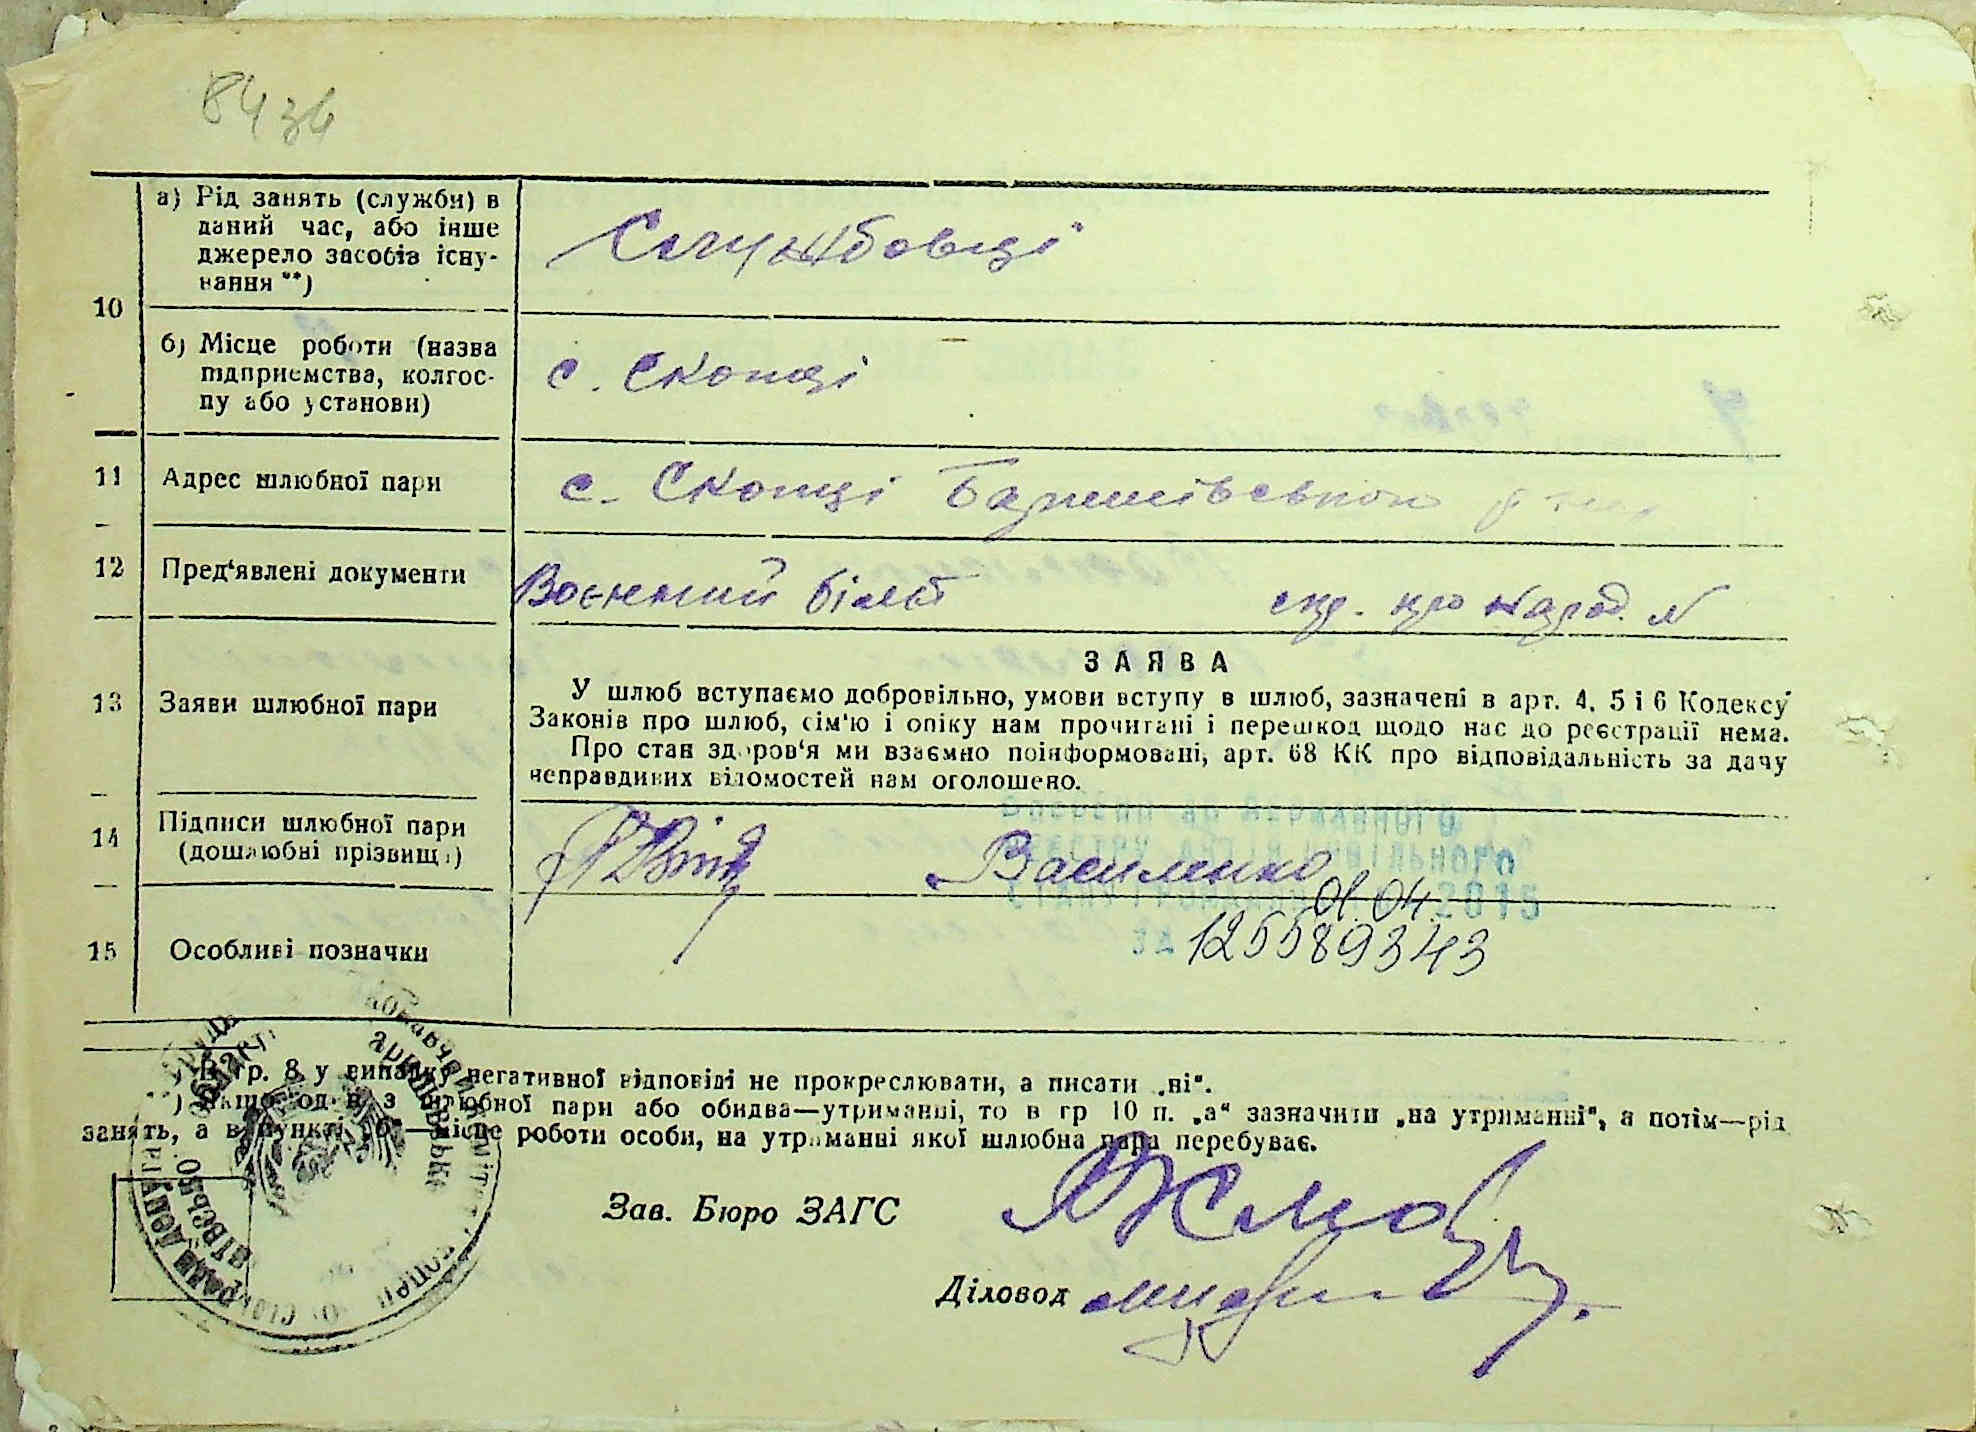 8436
а) Рід занять (служби) в
даний час, або інше
джерело засобів існу-
вання **)
Службовці
10
б) Місце роботи (назва
підприємства, колгос-
пу або установи)
с. Скопці
11 Адрес шлюбної пари
с. Скопці Баришівського р-ну
12 Пред'явлені документи
Воєнний білет спр. про народ. N
13 Заяви шлюбної пари
ЗАЯВА
У шлюб вступаємо добровільно, умови вступу в шлюб, зазначені в арт. 4, 5 і 6 Кодексу
Законів про шлюб, сім'ю і опіку нам прочитані і перешкод щодо нас до реєстрації нема.
Про стан здоров'я ми взаємно поінформовані, арт. 68 КК про відповідальність за дачу
неправдивих відомостей нам оголошено.
14 Підписи шлюбної пари
(дошлюбні прізвища)
Василенко
Внесено до Державного
реєстру актів цивільного
стану громадян 01.04.2015
за 125589343
15 Особливі позначки
В гр. 8 у випадку негативної відповіді не прокреслювати, а писати „ні“.
) Якщо один з шлюбної пари або обидва—утриманні, то в гр 10 п. „а“ зазначити „на утриманні“, а потім—рід
занять, а в пункті „б“—місце роботи особи, на утриманні якої шлюбна пара перебуває.
Зав. Бюро ЗАГС
Діловод